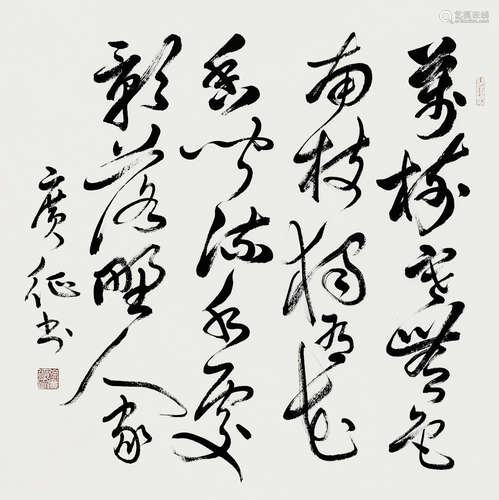 萬樹寒無色
南枝獨有花
香聞流水處
影落野人家
廣征書